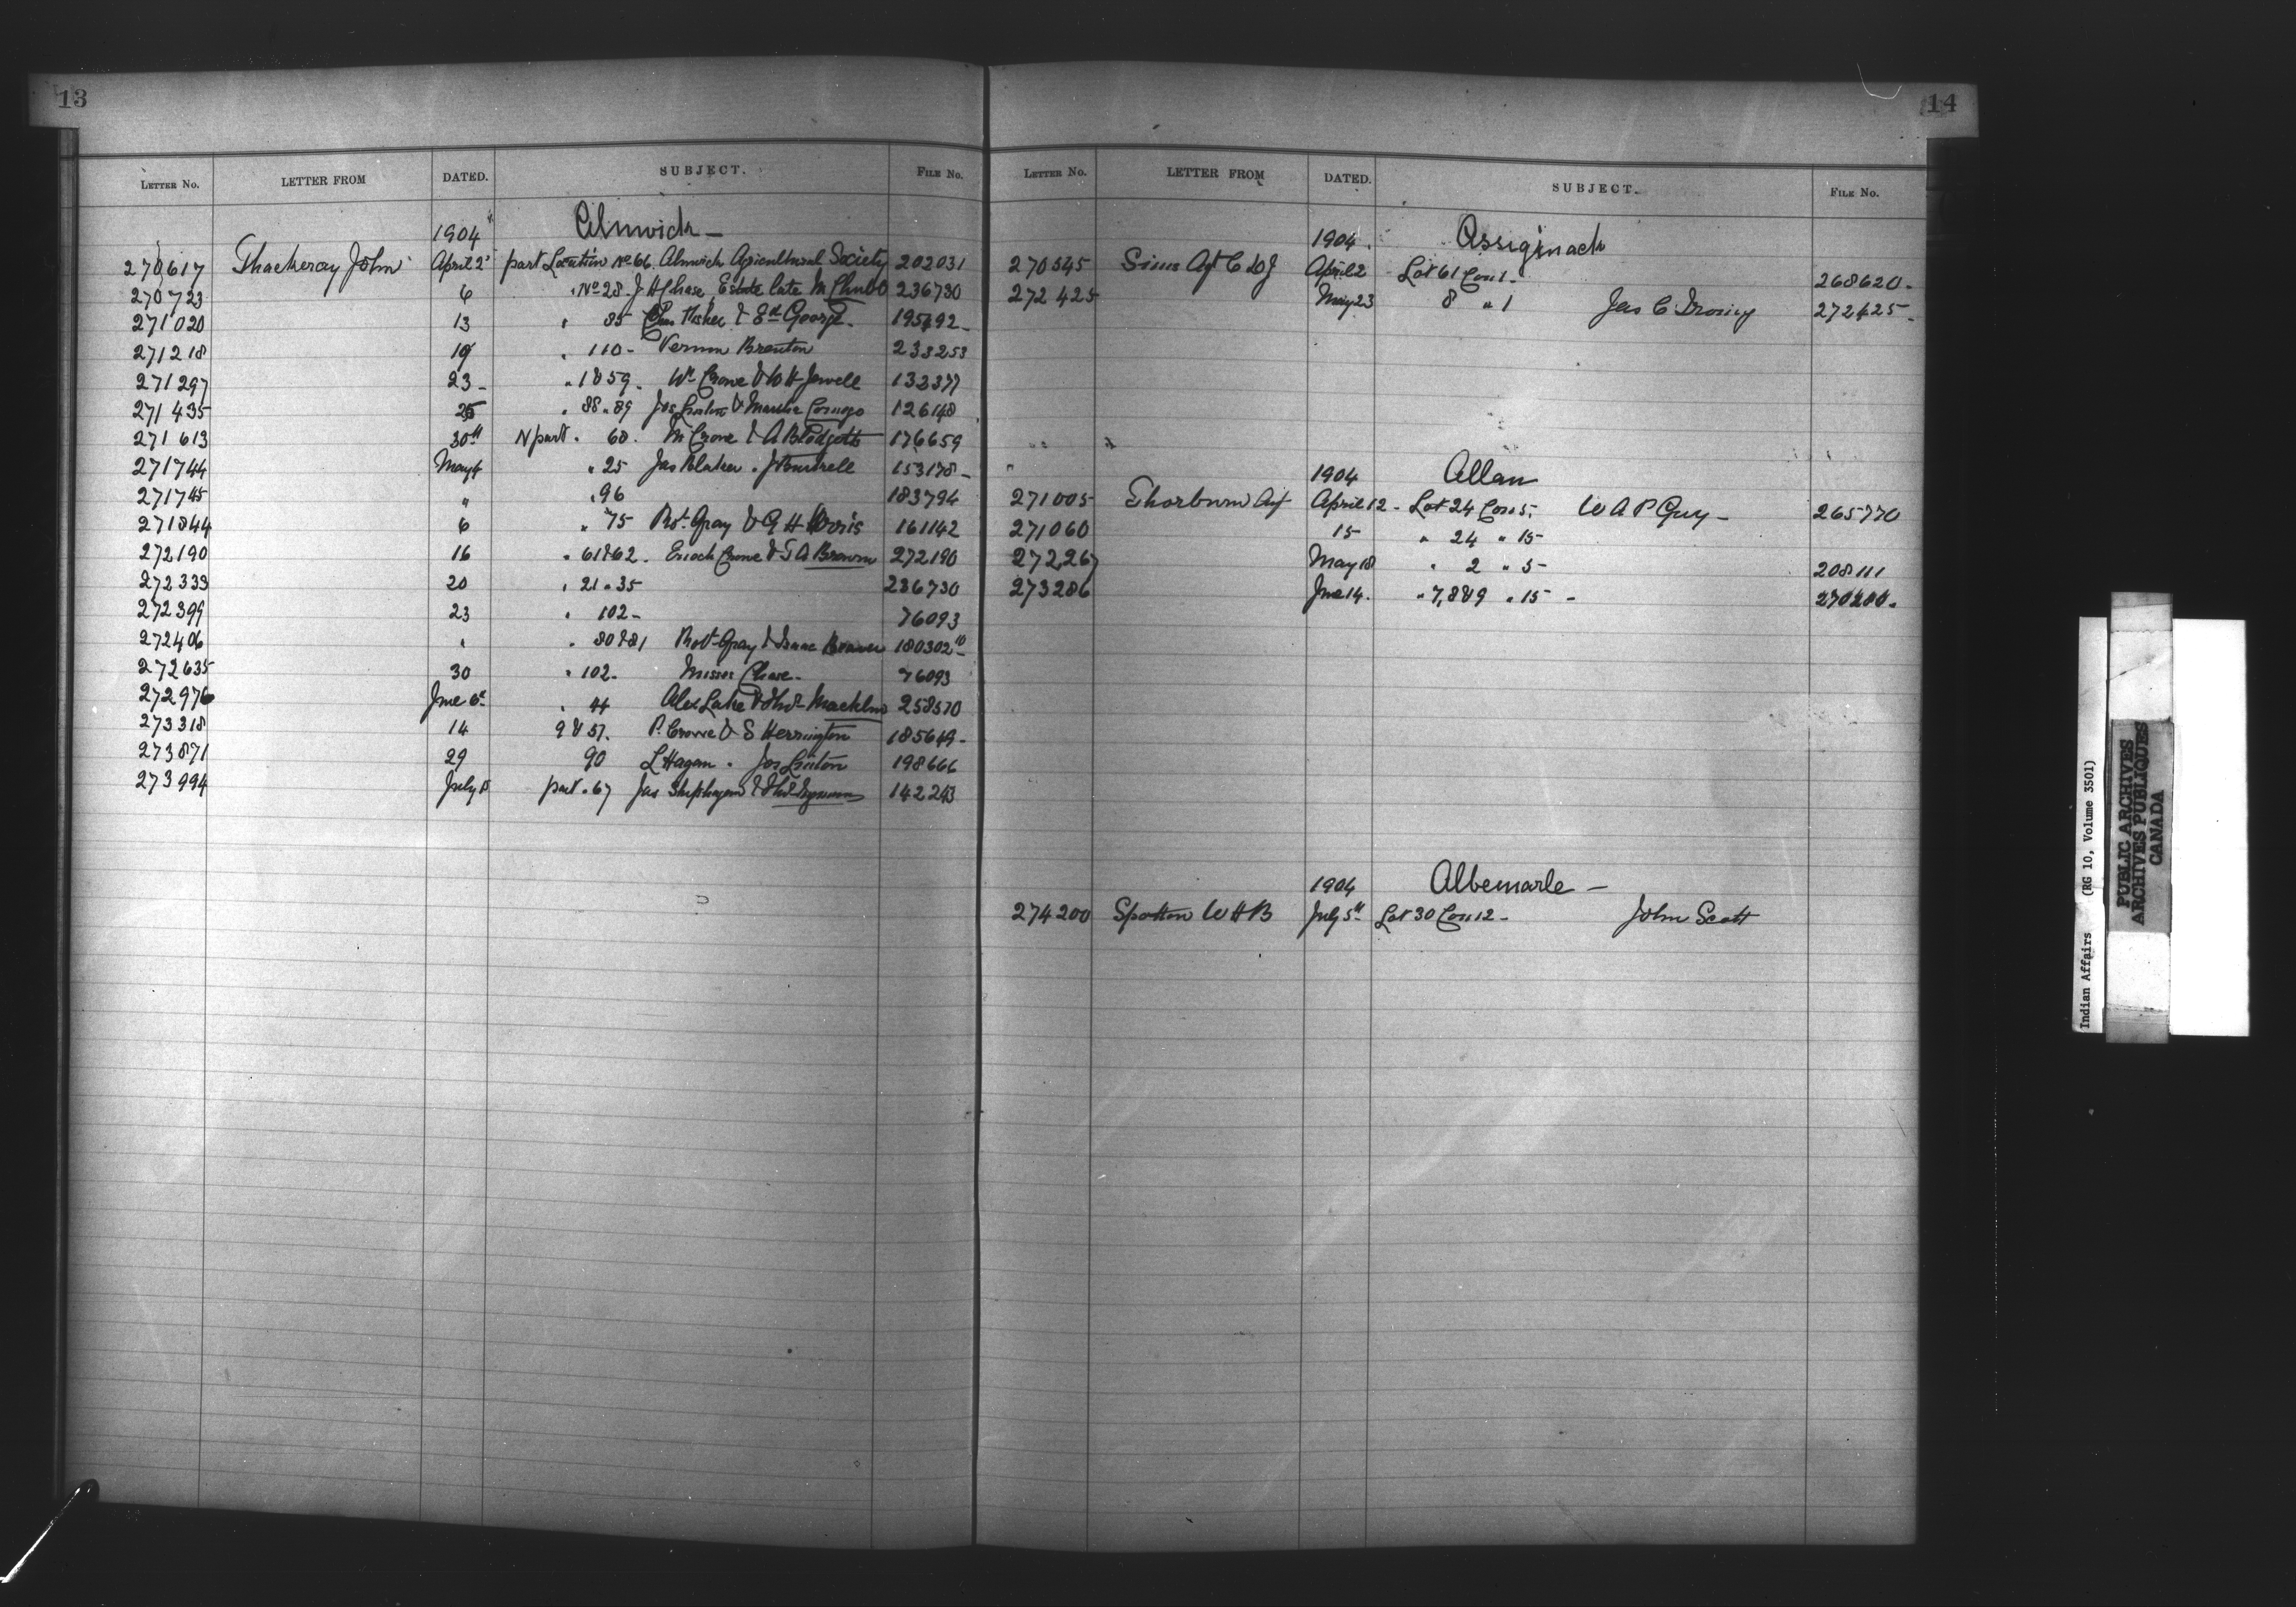 13
LETTER No. LETTER FROM DATED. SUBJECT. FILE No.
1904 Alnwick –
270617 Thackeray John April 2 part Location No 66. Alnwick Agricultural Society 202031
270723 6 " No 28. J H Chase Estate late M Chubb 236730
271020 13 " 35 Fisher & Ed George. 195692
271218 19 " 110 - Vernon Brenton 233253
271297 23 - " 18 59. Wm Crowe & W H Jewell 132377
271435 25 " 88 " 89 Jos & 126148
271613 30th N part " 60. M Crowe & A Blodgett 176659
271744 May 4 " 25 Jas Blaker " J 153178 -
271745 " " 96 183794
271844 6 " 75 Robt Gray & G H 161142
272190 16 " 61 & 62. Enoch Crowe & T A Brown 272190
272333 20 " 21 " 35 236730
272399 23 " 102 - 76093
272406 " " 80 & 81 Robt Gray & Isaac 180302
272635 30 " 102. Moses Chase - 76093
272976 June 6th " 44 Alex Lake & Thos Macklin 258570
273318 14 9 & 57. P. Crowe & S Herrington 185649 -
273871 29 90 L Hagan " Jos Linton 198666
273994 July 5 part " 67 Jas & Thos 142243
14
LETTER No. LETTER FROM DATED. SUBJECT. FILE No.
1904. Assiginack
270545 Sims Agt C L D J April 2 Lot 61 Con 1 - 268620 -
272425 May 23 8 " 1 Jas C Irving 272425 -
1904 Allan
271005 Thorburn Agt April 12 - Lot 24 Con 5. W A P Guy - 265770
271060 15 " 24 " 15
272,267 May 18 " 2 " 5 - 208111
273286 June 14. " 7, 8 & 9 " 15 - 270200.
1904 Albemarle –
274200 Spotton W H B July 5th Lot 30 Con 12 - John Scott
Indian Affairs (RG 10, Volume 3501)
PUBLIC ARCHIVES
ARCHIVES PUBLIQUES
CANADA